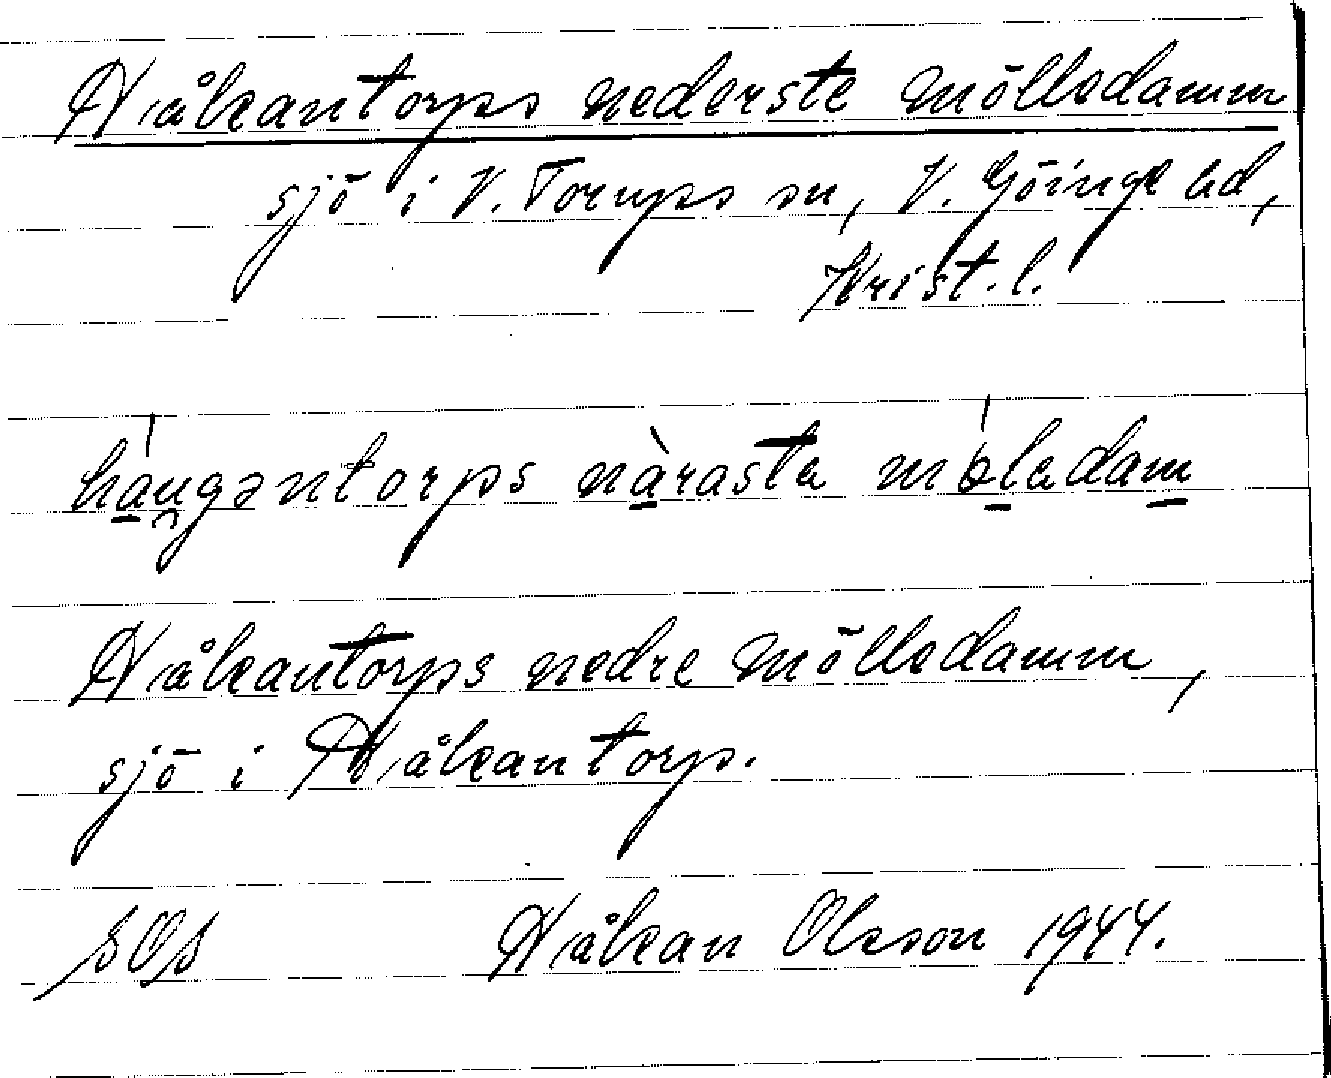 Håkantorps nederste möllsdamm
sjö i V. Torups sn, V. Göinge hd,
Krist. l.
hau̯gəntorps nàrasta mǿladam
Håkantorps nedre möllsdamm,
sjö i Håkantorp.
SOS Håkan Olsson 1944.